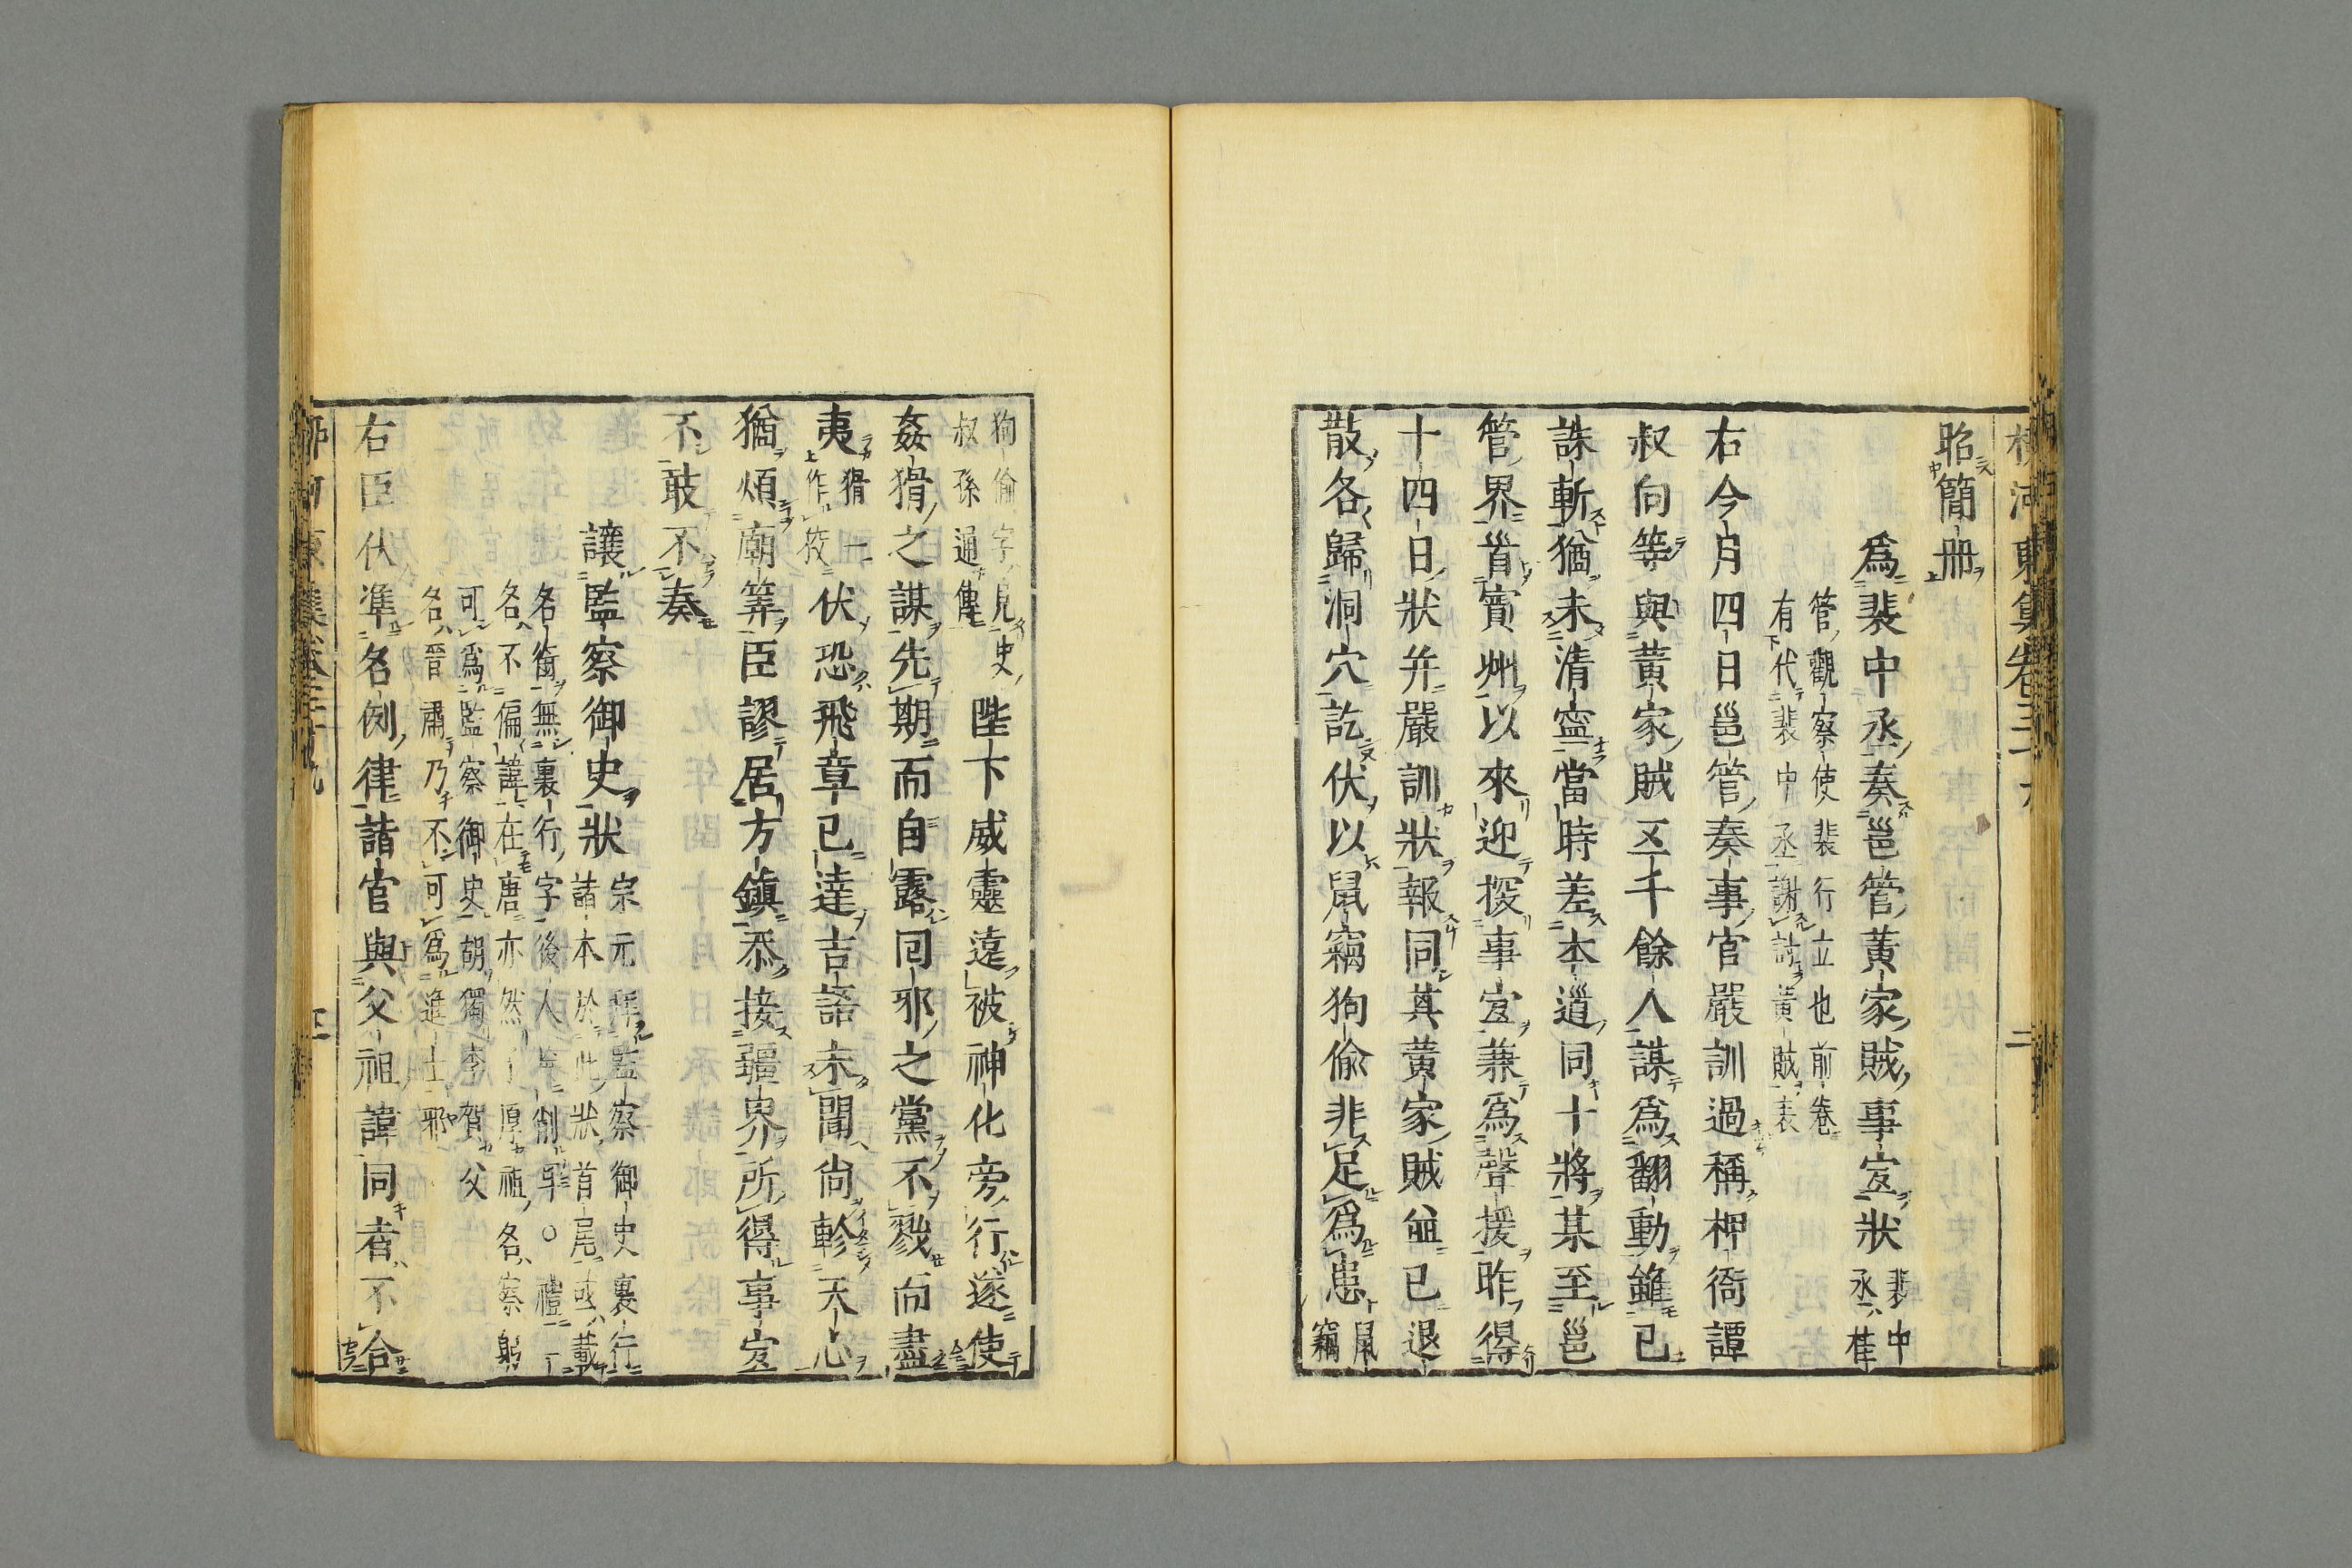 昭簡冊
爲裴中丞奏邕管黄家賊事宜狀
裴中丞桂
管觀察使裴行立也前卷
有代裴中丞謝討黄賊表
右今月四日邕管奏事官嚴訓過稱押衙譚
叔向等與黄家賊五千餘人謀爲翻動雖已
誅斬猶未清寧當時差本道同十將某至邕
管界首賓州以來迎探事宜兼爲聲援昨得
十四日狀并嚴訓狀報同其黄家賊並已退
散各歸洞穴訖伏以鼠竊狗偷非足爲患
鼠竊
狗偷字見史
叔孫通傳
陛下威靈遠被神化旁行遂使
姦猾之謀先期而自露同邪之黨不戮而盡
夷
猾一
上作狡
伏恐飛章已達吉語未聞尚軫天心
猶煩廟筭臣謬居方鎮忝接疆界所得事宜
不敢不奏
讓監察御史狀
宗元拜監察御史裏行
諸本於此狀首尾或載
名銜無裏行字後人率削
○禮二
名不偏諱在唐亦然
厚祖名察躬
可爲監察御史胡獨李賀父
名晋肅乃不可爲進士邪
右臣伏準名例律諸官與父祖諱同者不合